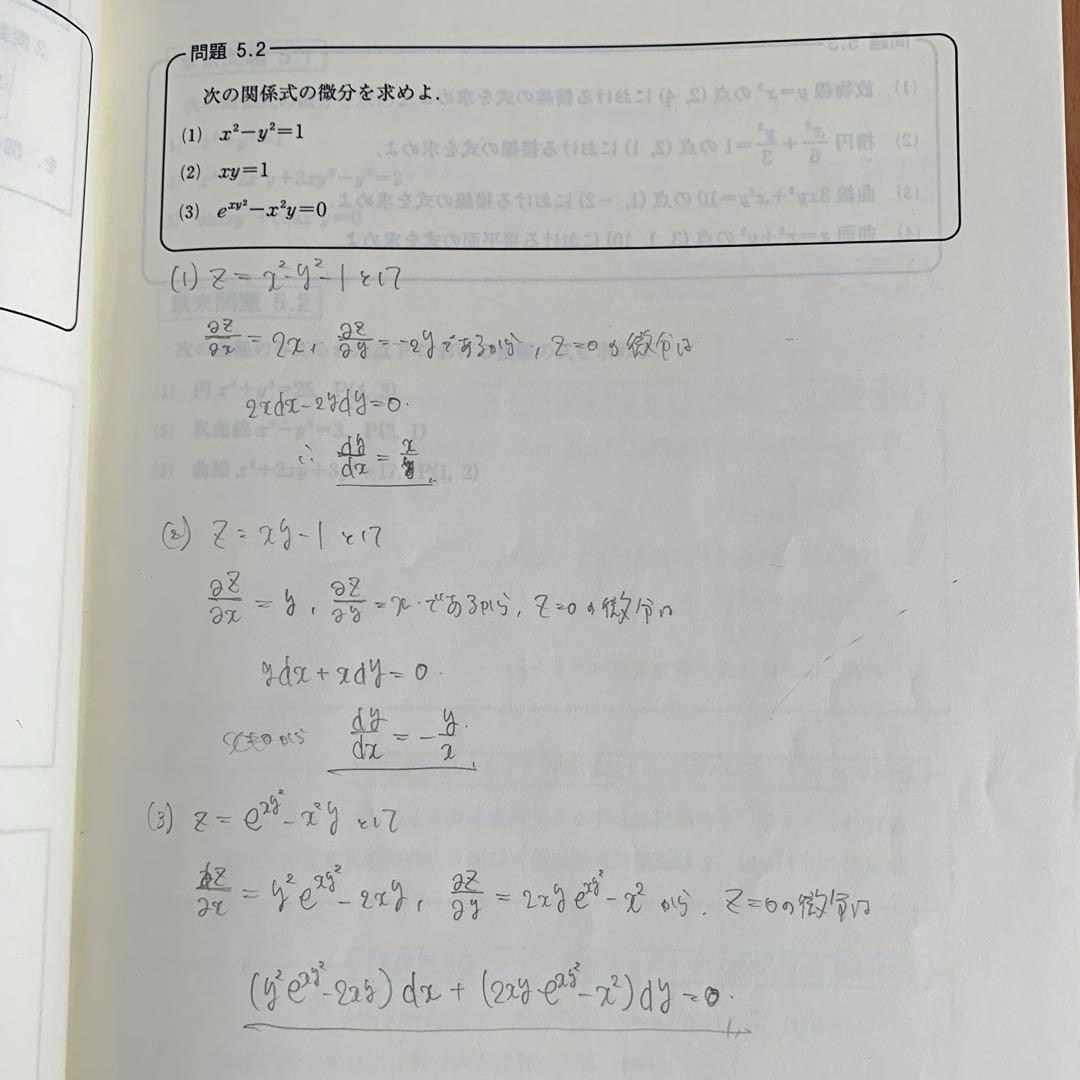 問題 5.2
次の関係式の微分を求めよ.
(1) x²−y²=1
(2) xy=1
(3) e^{xy²}−x²y=0
(1) z = x²-y²-1 として
∂z/∂x = 2x, ∂z/∂y = -2y であるから, z=0 の微分は
2xdx-2ydy=0.
∴ dy/dx = x/y
(2) z = xy-1 として
∂z/∂x = y, ∂z/∂y = x であるから, z=0 の微分は
ydx+xdy=0.
x≠0から dy/dx = -y/x.
(3) z = e^{xy²}-x²y として
∂z/∂x = y²e^{xy²}-2xy, ∂z/∂y = 2xye^{xy²}-x² から, z=0の微分は
(y²e^{xy²}-2xy)dx+(2xye^{xy²}-x²)dy=0.